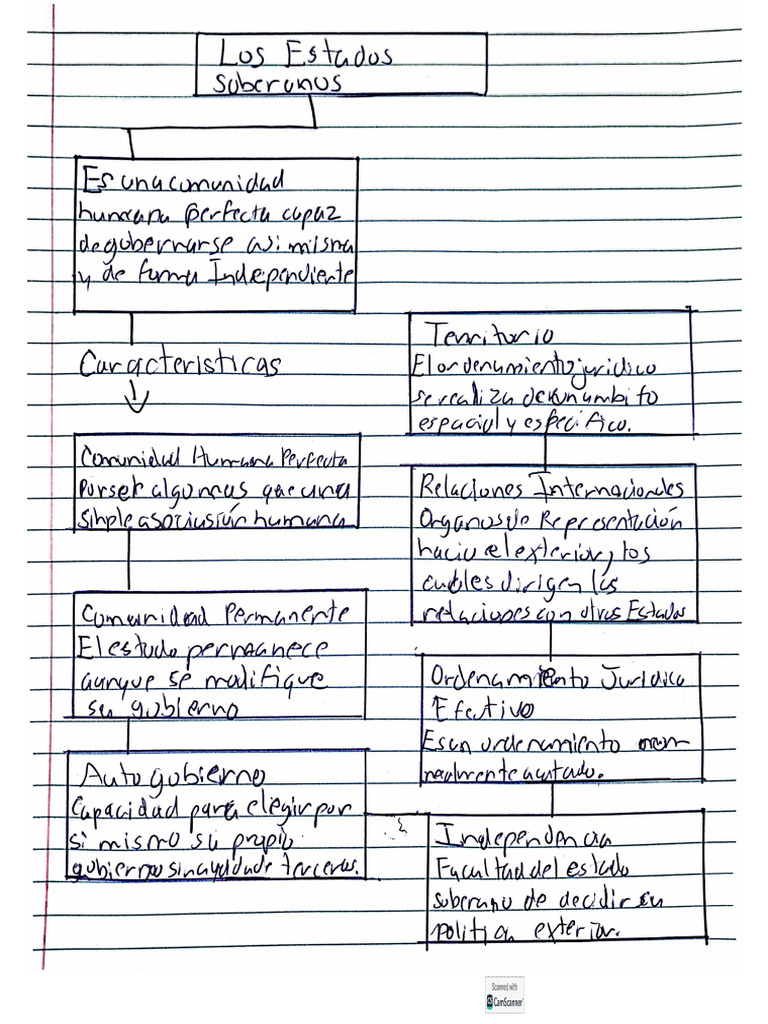 Los Estados
Soberanos
Es una comunidad
humana perfecta capaz
de gobernarse asi misma
y de forma Independiente
Caracteristicas
Comunidad Humana Perfecta
Por ser algo mas que una
simple asociasión humana
Comunidad Permanente
El estado permanece
aunque se modifique
su gobierno
Auto gobierno
Capacidad para elegir por
si mismo su propio
gobierno sin ayuda de terceros.
Territorio
El ordenamiento juridico
se realiza de un ambito
espacial y especifico.
Relaciones Internacionales
Organos de Representación
hacia el exterior, los
cuales dirigen las
relaciones con otros Estados
Ordenamiento Juridico
Efectivo
Es un ordenamiento
acatado.
Independencia
Facultad del estado
soberano de decidir su
politica exterior.
Scanned with
CS CamScanner